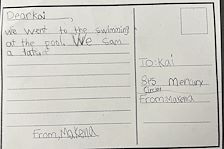 Dear kai,
we went to the swimming
at the pool. We sam
a
From, Makend
To: kai
815 Mercury
Circel
From: Makend